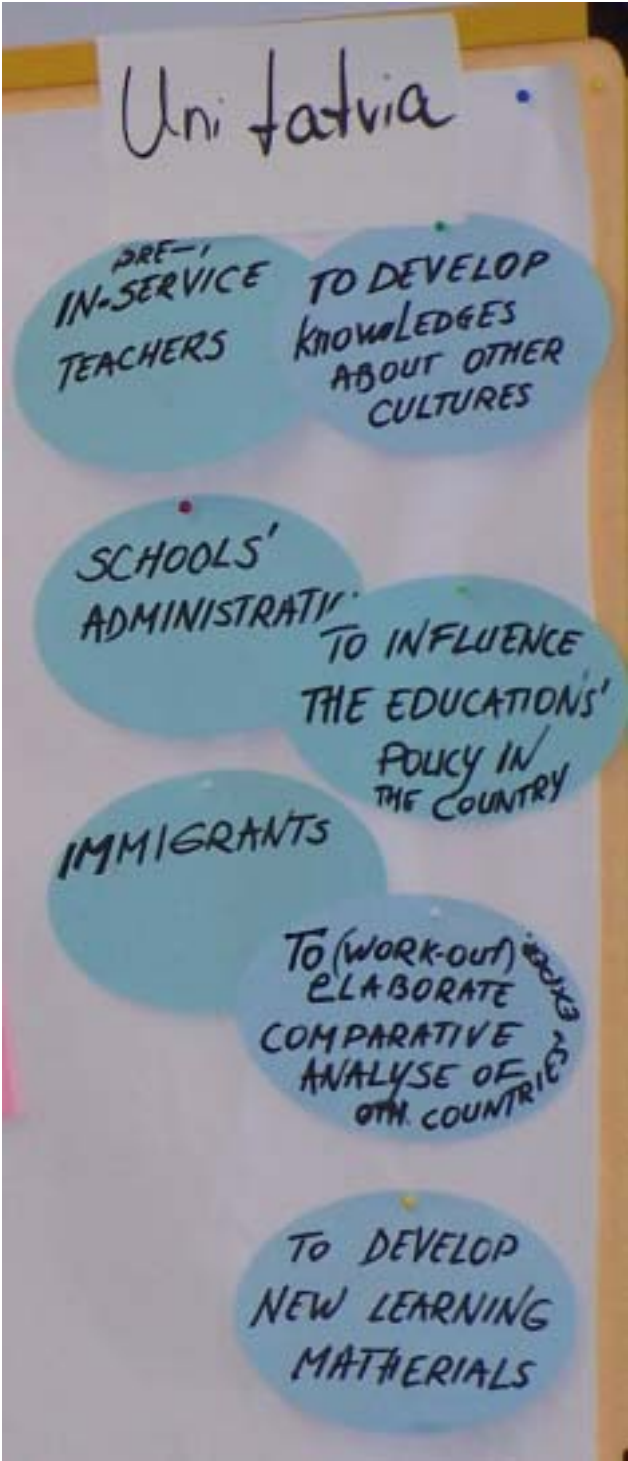 Uni Latvia
PRE-,
IN-SERVICE
TEACHERS
TO DEVELOP
KNOWLEDGES
ABOUT OTHER
CULTURES
SCHOOLS'
ADMINISTRATI
TO INFLUENCE
THE EDUCATION'S'
POLICY IN
THE COUNTRY
IMMIGRANTS
TO (WORK-OUT)
ELABORATE
COMPARATIVE
ANALYSE OF
OTH. COUNTRIES
EXPER.
TO DEVELOP
NEW LEARNING
MATHERIALS